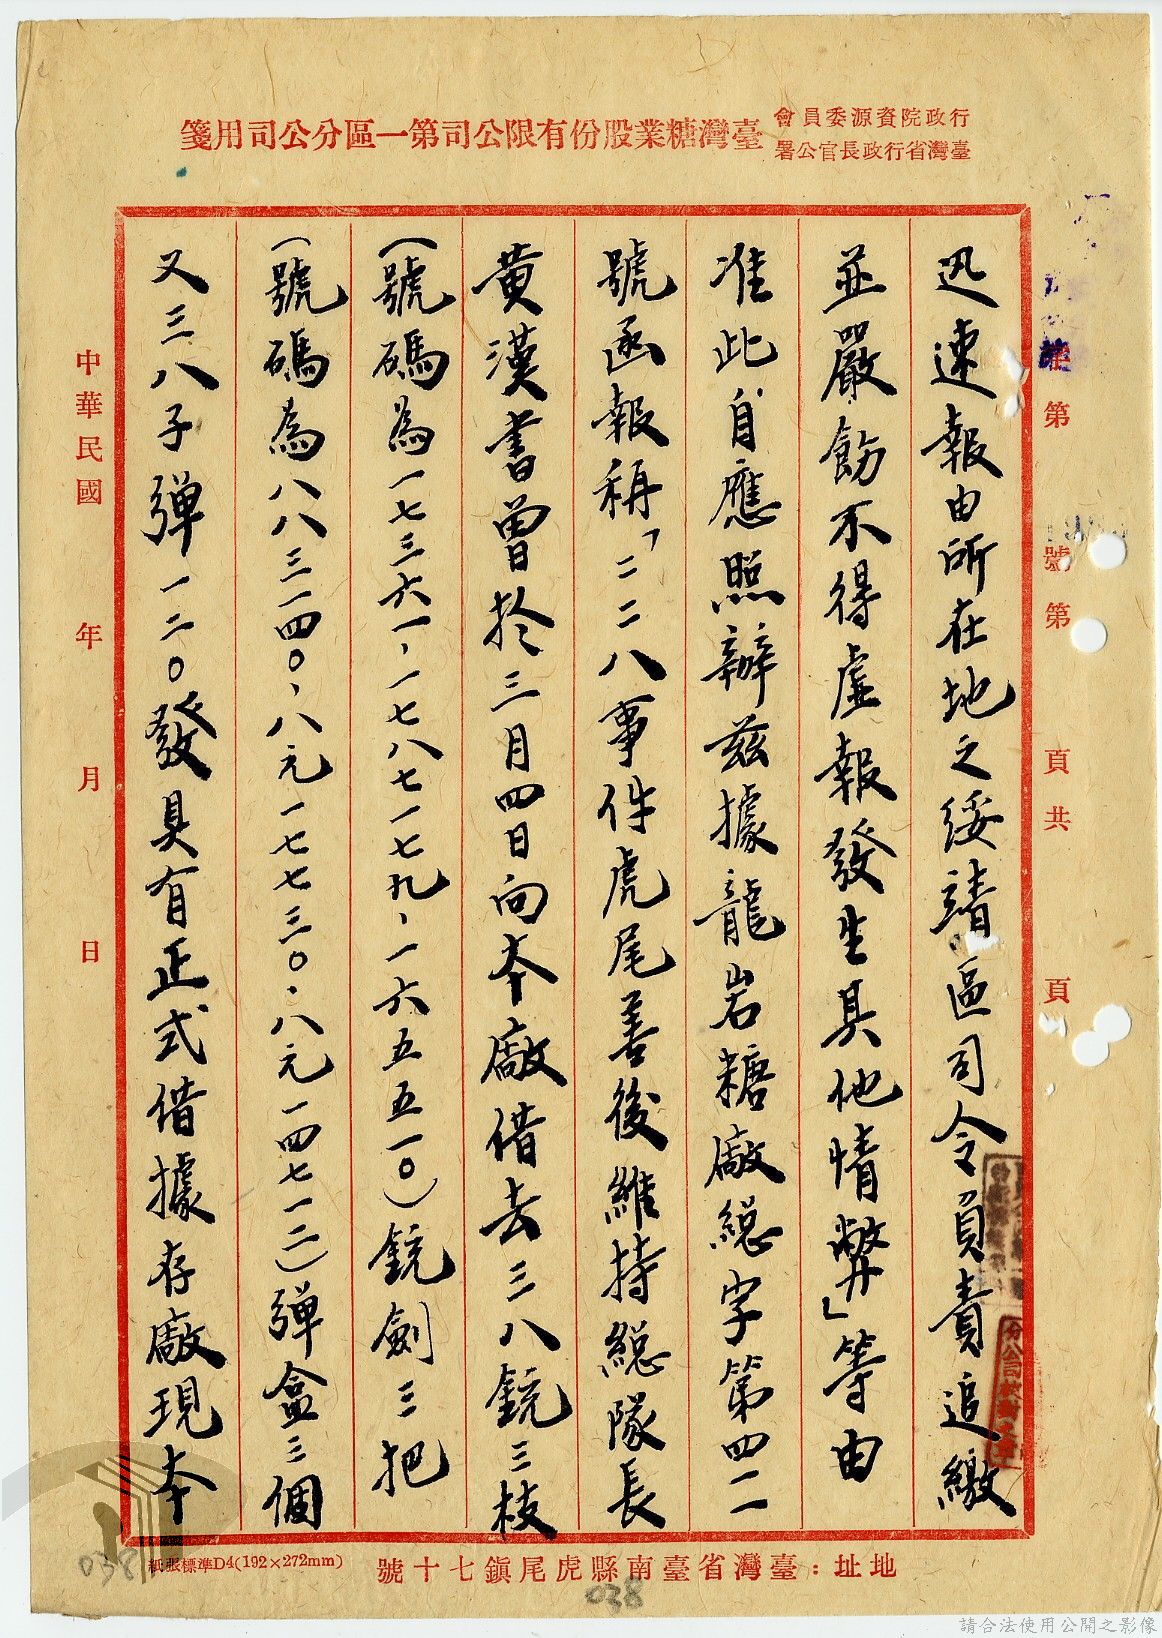 行政院資源委員會
臺灣省行政長官公署
臺灣糖業股份有限公司第一區分公司用箋
第 號第 頁共 頁
迅速報由所在地之綏靖區司令負責追繳
並嚴飭不得虛報發生其他情弊」等由
准此自應照辦茲據龍岩糖廠總字第四二
號函報稱「二二八事件虎尾善後維持總隊長
黃漢書曾於三月四日向本廠借去三八銃三枝
(號碼為一七三六一、一七八七一七九、一六五五一〇)銃劍三把
(號碼為八八三一四〇、八元一七七三〇、八元一四七一二)彈盒三個
又三八子彈一二〇發具有正式借據存廠現本
中華民國 年 月 日
紙張標準D4(192×272mm)
地址:臺灣省臺南縣虎尾鎮七十號
038
038
請合法使用公開之影像